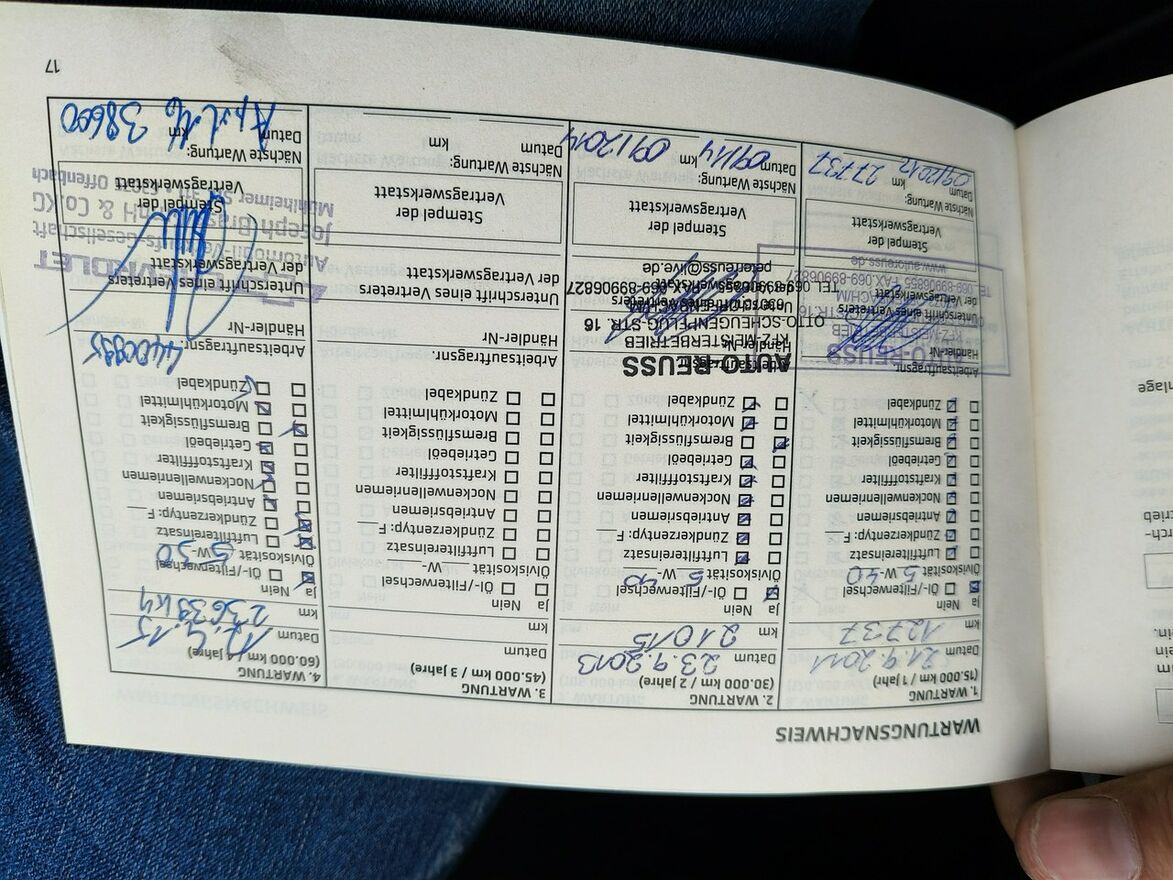 WARTUNGSNACHWEIS
1. WARTUNG
(15.000 km / 1 Jahr)
Datum 21.9.2011
km 12737
Ja Nein
Öl-/Filterwechsel
Ölviskosität 5 W- 40
Luftfiltereinsatz
Zündkerzentyp: F
Antriebsriemen
Nockenwellenriemen
Kraftstofffilter
Getriebeöl
Bremsflüssigkeit
Motorkühlmittel
Zündkabel
Arbeitsauftragsnr.
Händler-Nr
AUTO-REUSS
KFZ-MEISTERBETRIEB
Unterschrift eines Vertreters
der Vertragswerkstatt
TEL 069-89906855 FAX 069-89906827
www.autoreuss.de
Stempel der
Vertragswerkstatt
Nächste Wartung:
Datum km
09/2012 27737
2. WARTUNG
(30.000 km / 2 Jahre)
Datum 23.9.2013
km 21015
Ja Nein
Öl-/Filterwechsel
Ölviskosität 5 W- 40
Luftfiltereinsatz
Zündkerzentyp: F
Antriebsriemen
Nockenwellenriemen
Kraftstofffilter
Getriebeöl
Bremsflüssigkeit
Motorkühlmittel
Zündkabel
Arbeitsauftragsnr.
AUTO-REUSS
Händler-Nr
KFZ-MEISTERBETRIEB
OTTO-SCHEUGENPFLUG-STR. 16
Unterschrift eines Vertreters
der Vertragswerkstatt
TEL 069-89906855 FAX 069-89906827
peterreuss@live.de
Stempel der
Vertragswerkstatt
Nächste Wartung:
Datum km
09/14 09/2014
3. WARTUNG
(45.000 km / 3 Jahre)
Datum
km
Ja Nein
Öl-/Filterwechsel
Ölviskosität W-
Luftfiltereinsatz
Zündkerzentyp: F
Antriebsriemen
Nockenwellenriemen
Kraftstofffilter
Getriebeöl
Bremsflüssigkeit
Motorkühlmittel
Zündkabel
Arbeitsauftragsnr.
Händler-Nr
Unterschrift eines Vertreters
der Vertragswerkstatt
Stempel der
Vertragswerkstatt
Nächste Wartung:
Datum km
4. WARTUNG
(60.000 km / 4 Jahre)
Datum
km
Ja Nein
Öl-/Filterwechsel
Ölviskosität 5 W- 30
Luftfiltereinsatz
Zündkerzentyp: F
Antriebsriemen
Nockenwellenriemen
Kraftstofffilter
Getriebeöl
Bremsflüssigkeit
Motorkühlmittel
Zündkabel
Arbeitsauftragsnr.
Händler-Nr
Unterschrift eines Vertreters
der Vertragswerkstatt
CHEVROLET
Stempel der
Vertragswerkstatt
Nächste Wartung:
Datum km
April 16 38600
17